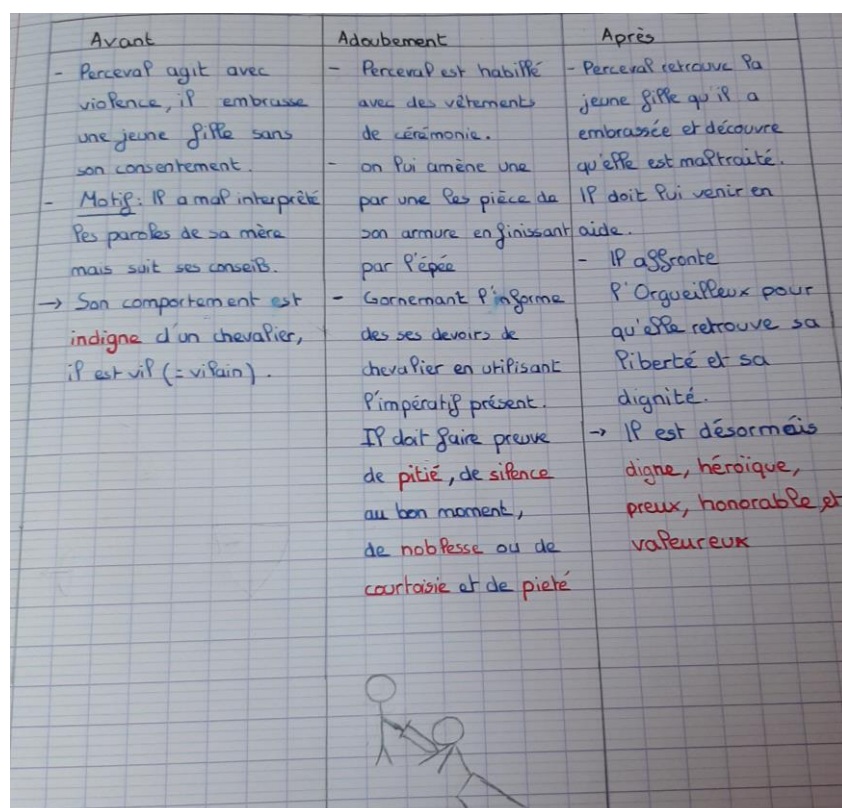 Avant
- Perceval agit avec
violence, il embrasse
une jeune fille sans
son consentement.
- Motif : Il a mal interprêté
les paroles de sa mère
mais suit ses conseils.
→ Son comportement est
indigne d'un chevalier,
il est vil (= vilain).
Adoubement
- Perceval est habillé
avec des vêtements
de cérémonie.
- on lui amène une
par une les pièce de
son armure en finissant
par l'épée
- Gornemant l'informe
des ses devoirs de
chevalier en utilisant
l'impératif présent.
Il doit faire preuve
de pitié, de silence
au bon moment,
de noblesse ou de
courtoisie et de pieté
Après
- Perceval retrouve la
jeune fille qu'il a
embrassée et découvre
qu'elle est maltraité.
Il doit lui venir en
aide.
- Il affronte
l'Orgueilleux pour
qu'elle retrouve sa
liberté et sa
dignité.
→ Il est désormais
digne, héroïque,
preux, honorable et
valeureux